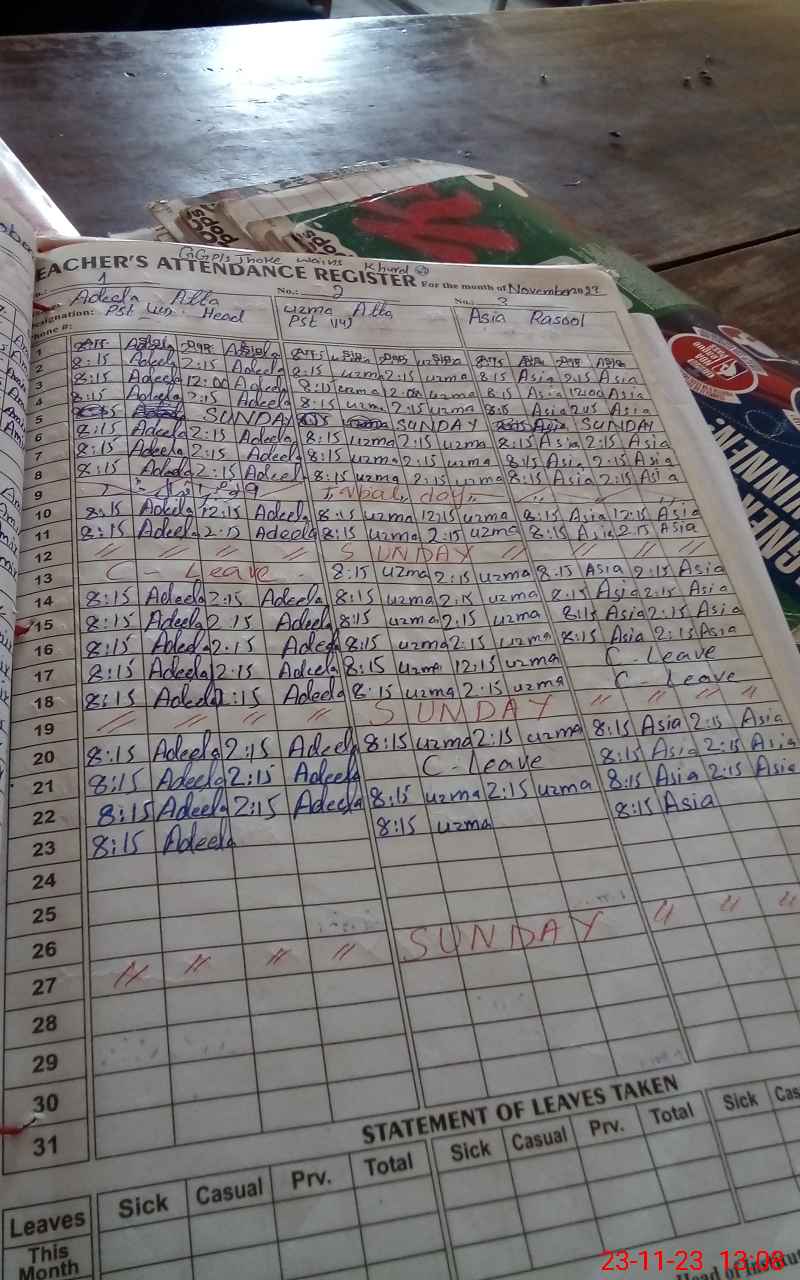 GGPS Jhoke wains Khurd
TEACHER'S ATTENDANCE REGISTER For the month of November 2023
No.: 1 No.: 2 No.: 3
Adeela Atta uzma Atta Asia Rasool
Designation: Pst Head Pst (14)
Phone #:
1
2 8:15 Adeela 2:15 Adeela 8:15 uzma 2:15 uzma 8:15 Asia 2:15 Asia
3 8:15 Adeela 12:00 Adeela 8:15 uzma uzma 8:15 Asia 12:00 Asia
4 8:15 Adeela 2:15 Adeela 8:15 uzma 2:15 uzma 8:15 Asia 2:15 Asia
5 SUNDAY SUNDAY SUNDAY
6 8:15 Adeela 2:15 Adeela 8:15 uzma 2:15 uzma 8:15 Asia 2:15 Asia
7 8:15 Adeela 2:15 Adeela 8:15 uzma 2:15 uzma 8:15 Asia 2:15 Asia
8 8:15 Adeela 2:15 Adeela 8:15 uzma 2:15 uzma 8:15 Asia 2:15 Asia
9 day
10 8:15 Adeela 12:15 Adeela 8:15 uzma 12:15 uzma 8:15 Asia 12:15 Asia
11 8:15 Adeela 2:15 Adeela 8:15 uzma 2:15 uzma 8:15 Asia 2:15 Asia
12 " " " " SUNDAY " " " "
13 C-Leave 8:15 uzma 2:15 uzma 8:15 Asia 2:15 Asia
14 8:15 Adeela 2:15 Adeela 8:15 uzma 2:15 uzma 8:15 Asia 2:15 Asia
15 8:15 Adeela 2:15 Adeela 8:15 uzma 2:15 uzma 8:15 Asia 2:15 Asia
16 8:15 Adeela 2:15 Adeela 8:15 uzma 2:15 uzma 8:15 Asia 2:15 Asia
17 8:15 Adeela 2:15 Adeela 8:15 uzma 12:15 uzma C-Leave
18 8:15 Adeela 2:15 Adeela 8:15 uzma 2:15 uzma C-Leave
19 " " " " SUNDAY " " " "
20 8:15 Adeela 2:15 Adeela 8:15 uzma 2:15 uzma 8:15 Asia 2:15 Asia
21 8:15 Adeela 2:15 Adeela C-Leave 8:15 Asia 2:15 Asia
22 8:15 Adeela 2:15 Adeela 8:15 uzma 2:15 uzma 8:15 Asia 2:15 Asia
23 8:15 Adeela 8:15 uzma 8:15 Asia
24
25
26 " " " " SUNDAY " " "
27
28
29
30
31
STATEMENT OF LEAVES TAKEN
Leaves Sick Casual Prv. Total Sick Casual Prv. Total Sick Cas
This
Month
Head of Institut
23-11-23 13:08